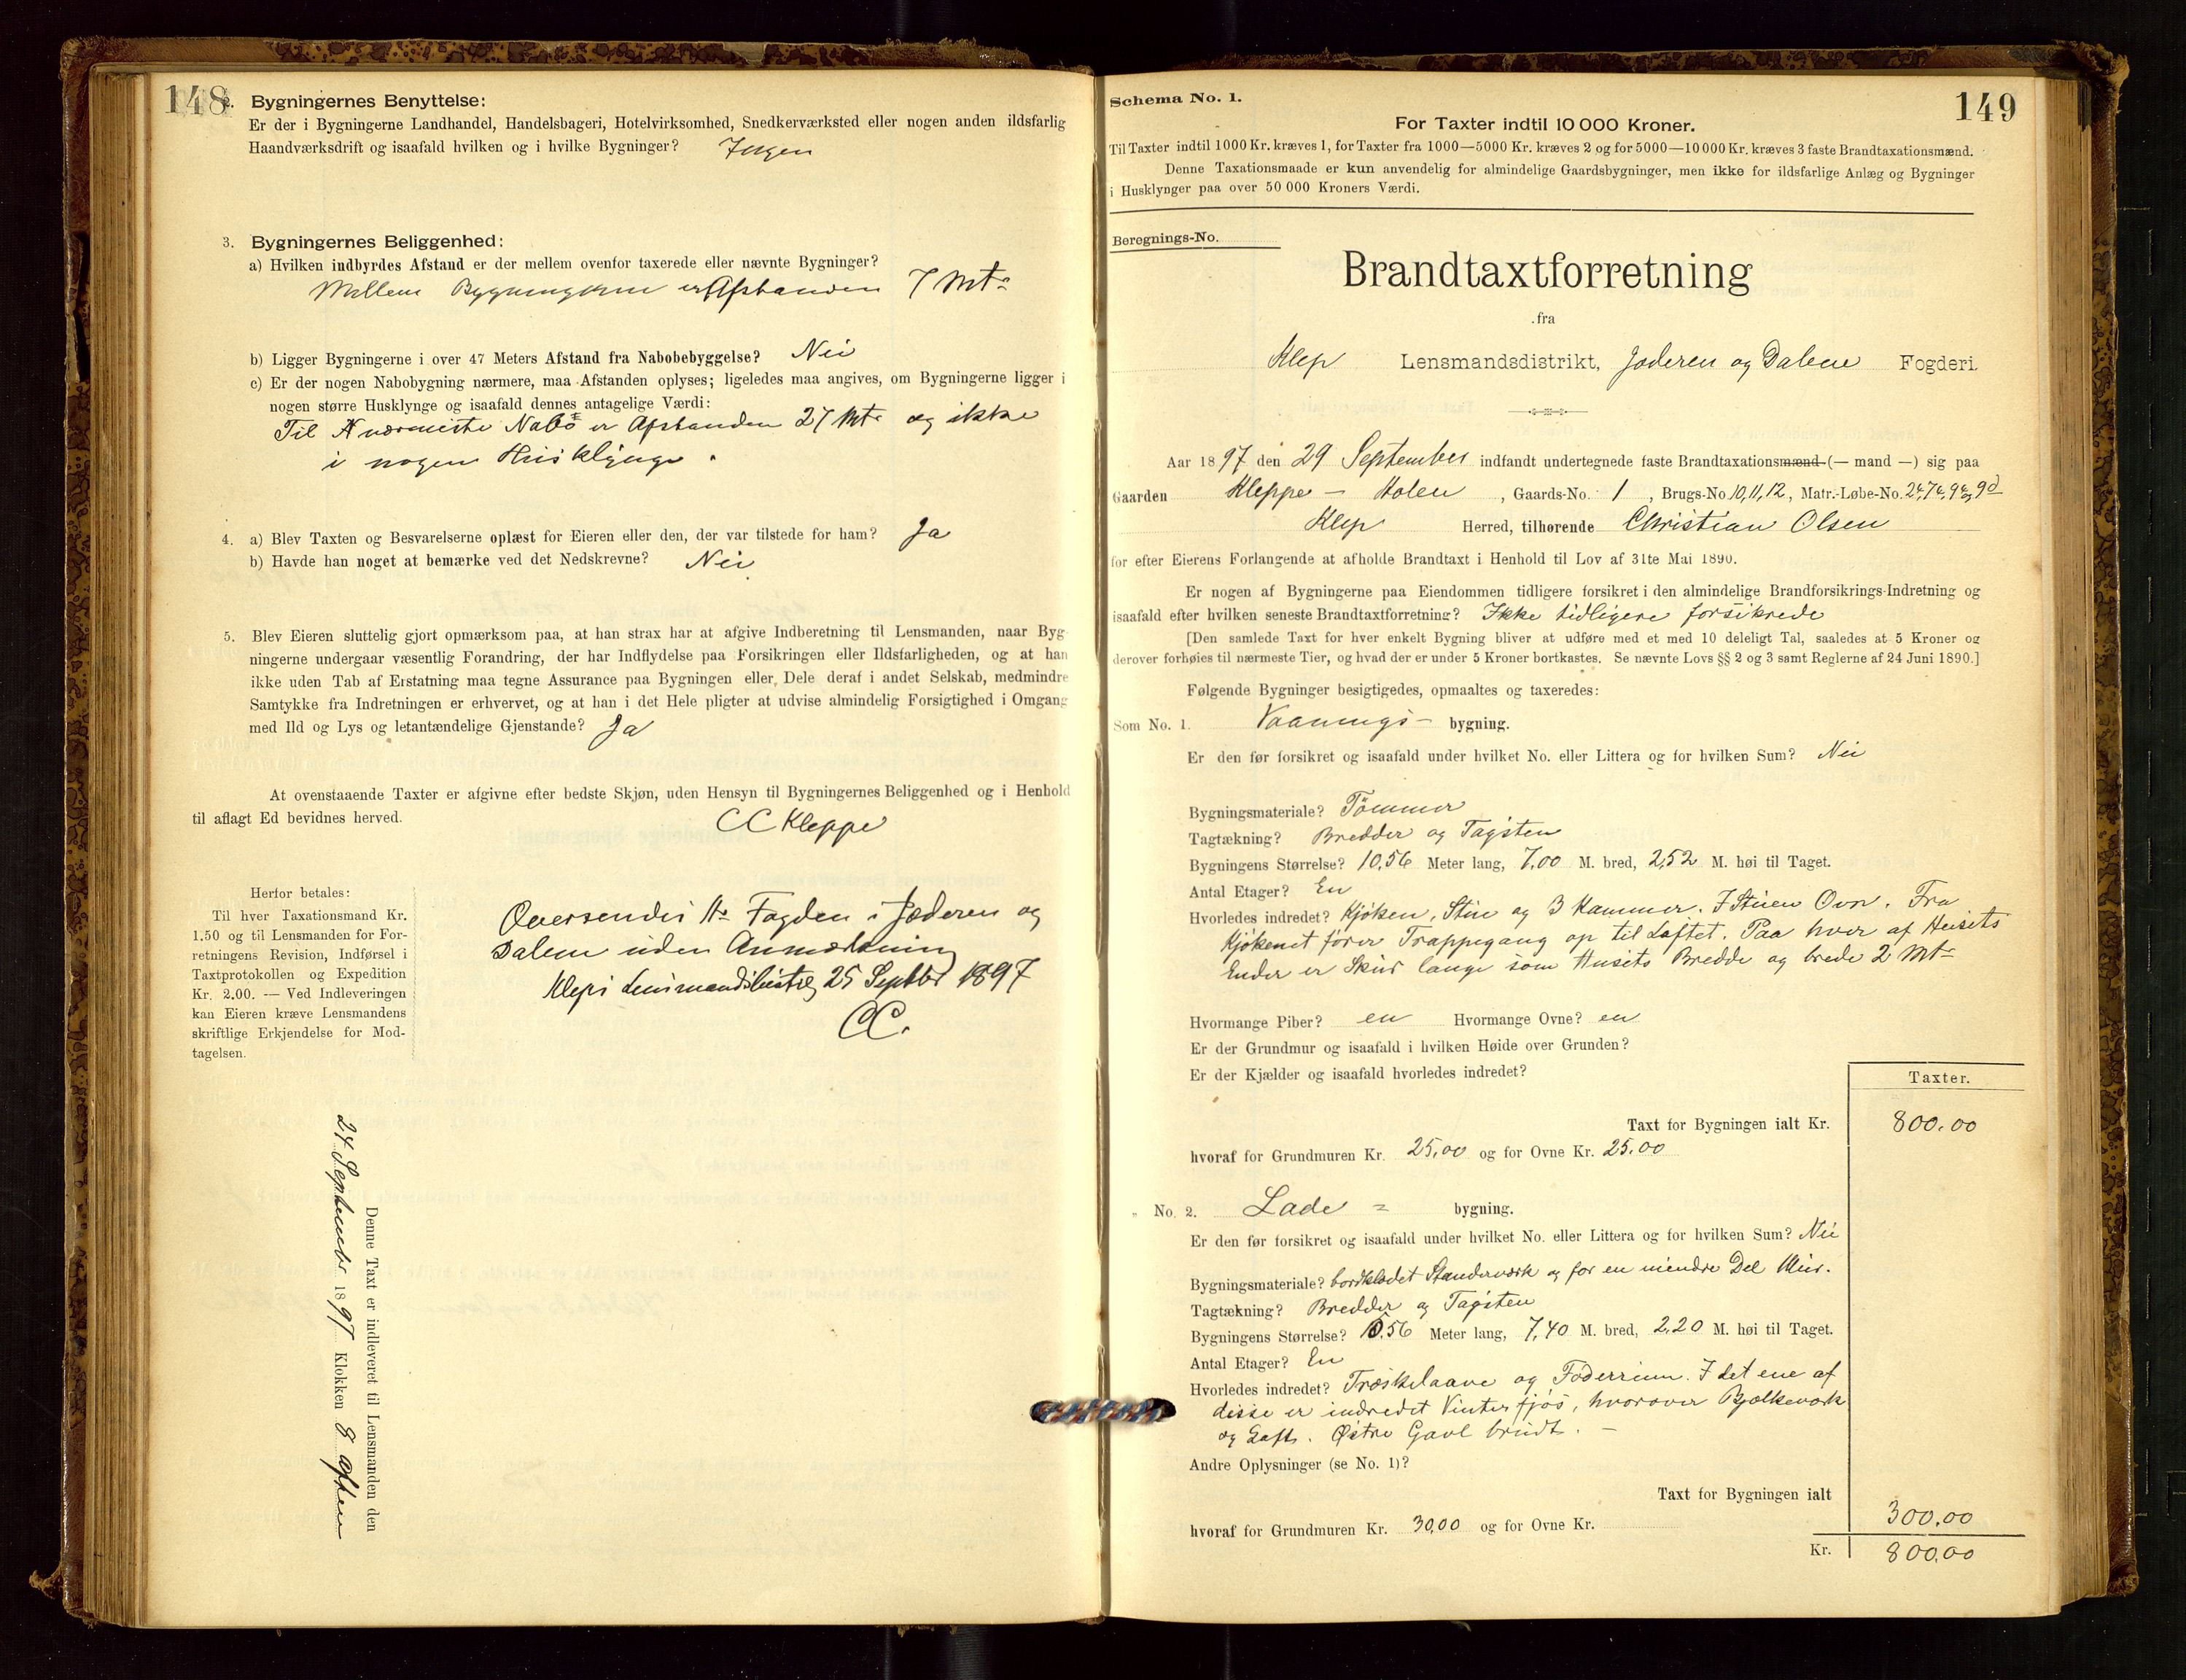 148
2. Bygningernes Benyttelse:
Er der i Bygningerne Landhandel, Handelsbageri, Hotelvirksomhed, Snedkerværksted eller nogen anden ildsfarlig
Haandværksdrift og isaafald hvilken og i hvilke Bygninger? Ingen
3. Bygningernes Beliggenhed:
a) Hvilken indbyrdes Afstand er der mellem ovenfor taxerede eller nævnte Bygninger?
Mellem Bygningerne er Afstanden 7 Mtr
b) Ligger Bygningerne i over 47 Meters Afstand fra Nabobebyggelse? Nei
c) Er der nogen Nabobygning nærmere, maa Afstanden oplyses; ligeledes maa angives, om Bygningerne ligger i
nogen større Husklynge og isaafald dennes antagelige Værdi:
Til nærmeste Nabo er Afstanden 27 Mtr og ikke
i nogen Husklynge.
4. a) Blev Taxten og Besvarelserne oplæst for Eieren eller den, der var tilstede for ham? Ja
b) Havde han noget at bemærke ved det Nedskrevne? Nei
5. Blev Eieren sluttelig gjort opmærksom paa, at han strax har at afgive Indberetning til Lensmanden, naar Byg
ningerne undergaar væsentlig Forandring, der har Indflydelse paa Forsikringen eller Ildsfarligheden, og at han
ikke uden Tab af Erstatning maa tegne Assurance paa Bygningen eller Dele deraf i andet Selskab, medmindre
Samtykke fra Indretningen er erhvervet, og at han i det Hele pligter at udvise almindelig Forsigtighed i Omgang
med Ild og Lys og letantændelige Gjenstande? Ja
At ovenstaaende Taxter er afgivne efter bedste Skjøn, uden Hensyn til Bygningernes Beliggenhed og i Henhold
til aflagt Ed bevidnes herved.
CC Kleppe
Herfor betales:
Til hver Taxationsmand Kr.
1.50 og til Lensmanden for For-
retningens Revision, Indførsel i
Taxtprotokollen og Expedition
Kr. 2.00. — Ved Indleveringen
kan Eieren kræve Lensmandens
skriftlige Erkjendelse for Mod-
tagelsen.
Oversendes Hr Fogden i Jæderen og
Dalene uden Anmærkning
Klep Lensmandsbestil, 25 Septbr 1897
CC.
Denne Taxt er indleveret til Lensmanden den
24 September 1897 Klokken 8 Aften
Schema No. 1.
149
For Taxter indtil 10 000 Kroner.
Til Taxter indtil 1000 Kr. kræves 1, for Taxter fra 1000—5000 Kr. kræves 2 og for 5000—10 000 Kr. kræves 3 faste Brandtaxationsmænd.
Denne Taxationsmaade er kun anvendelig for almindelige Gaardsbygninger, men ikke for ildsfarlige Anlæg og Bygninger
i Husklynger paa over 50 000 Kroners Værdi.
Beregnings-No.
Brandtaxtforretning
fra
Klep Lensmandsdistrikt, Jæderen og Dalene Fogderi.
Aar 1897 den 29 September indfandt undertegnede faste Brandtaxationsmænd (— mand —) sig paa
Gaarden Kleppe - Holen, Gaards-No. 1, Brugs-No 10, 11, 12, Matr.-Løbe-No. 2c, 7c, 9c og 9d
Klep Herred, tilhørende Christian Olsen
for efter Eierens Forlangende at afholde Brandtaxt i Henhold til Lov af 31te Mai 1890.
Er nogen af Bygningerne paa Eiendommen tidligere forsikret i den almindelige Brandforsikrings-Indretning og
isaafald efter hvilken seneste Brandtaxtforretning? Ikke tidligere forsikrede
[Den samlede Taxt for hver enkelt Bygning bliver at udføre med et med 10 deleligt Tal, saaledes at 5 Kroner og
derover forhøies til nærmeste Tier, og hvad der er under 5 Kroner bortkastes. Se nævnte Lovs §§ 2 og 3 samt Reglerne af 24 Juni 1890.]
Følgende Bygninger besigtigedes, opmaaltes og taxeredes:
Som No. 1. Vaanings- bygning.
Er den før forsikret og isaafald under hvilket No. eller Littera og for hvilken Sum? Nei
Bygningsmateriale? Tømmer
Tagtækning? Bredder og Tagsten
Bygningens Størrelse? 10,56 Meter lang, 7,00 M. bred, 2,52 M. høi til Taget.
Antal Etager? En
Hvorledes indredet? Kjøken, Stue og 3 Kammer. I Stuen Ovn. Fra
Kjøkenet fører Trappegang op til Loftet. Paa hver af Husets
Ender er Skur lange som Husets Bredde og brede 2 Mtr
Hvormange Piber? en Hvormange Ovne? en
Er der Grundmur og isaafald i hvilken Høide over Grunden?
Er der Kjælder og isaafald hvorledes indredet?
Taxter.
Taxt for Bygningen ialt Kr. 800.00
hvoraf for Grundmuren Kr. 25,00 og for Ovne Kr. 25.00
" No. 2. Lade = bygning.
Er den før forsikret og isaafald under hvilket No. eller Littera og for hvilken Sum? Nei
Bygningsmateriale? bordklædet Standerværk og for en mindre Del Mur.
Tagtækning? Bredder og Tagsten
Bygningens Størrelse? 10,56 Meter lang, 7,40 M. bred, 2,20 M. høi til Taget.
Antal Etager? En
Hvorledes indredet? Træskelaave og Foderrum. I det ene af
disse er indredet Vinterfjøs, hvorover Bjælkeværk
og Loft. Østre Gavl brudt. -
Andre Oplysninger (se No. 1)?
Taxt for Bygningen ialt 300.00
hvoraf for Grundmuren Kr. 30,00 og for Ovne Kr.
Kr. 800,00